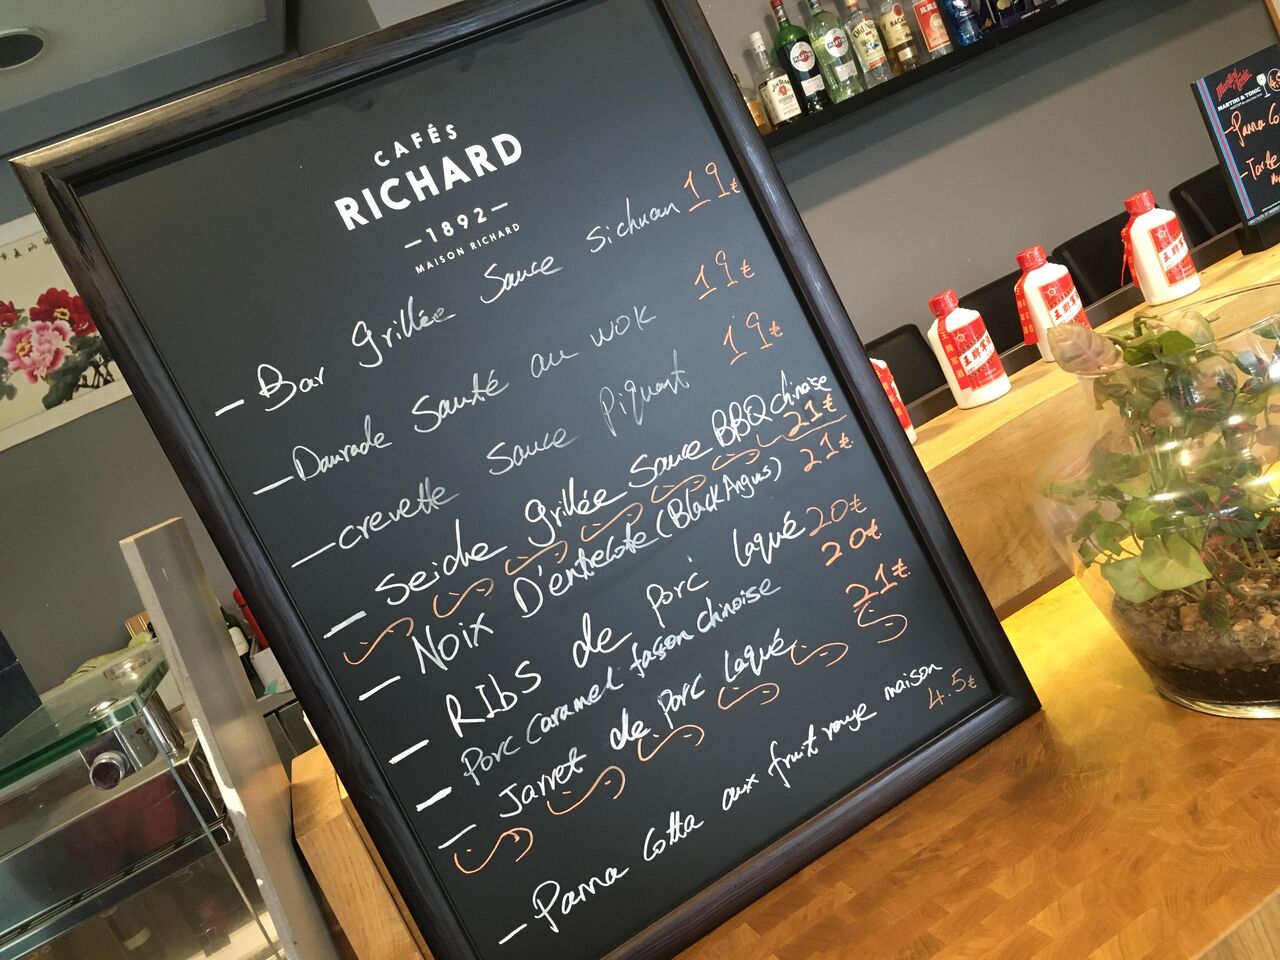 CAFÉS
RICHARD
—1892—
MAISON RICHARD
— Bar grillée Sauce Sichuan 19€
— Daurade Sauté au wok 19€
— crevette Sauce Piquant 19€
— seiche grillée Sauce BBQ chinoise 21€
— Noix D'entrecote (Black Angus) 21€
— RIbs de porc laqué 20€
— Porc Caramel façon chinoise 20€
— Jarret de Porc laqué 21€
— Panna Cotta aux fruit rouge maison 4.5€
MARTINI & TONIC
- Panna Co
- Tarte